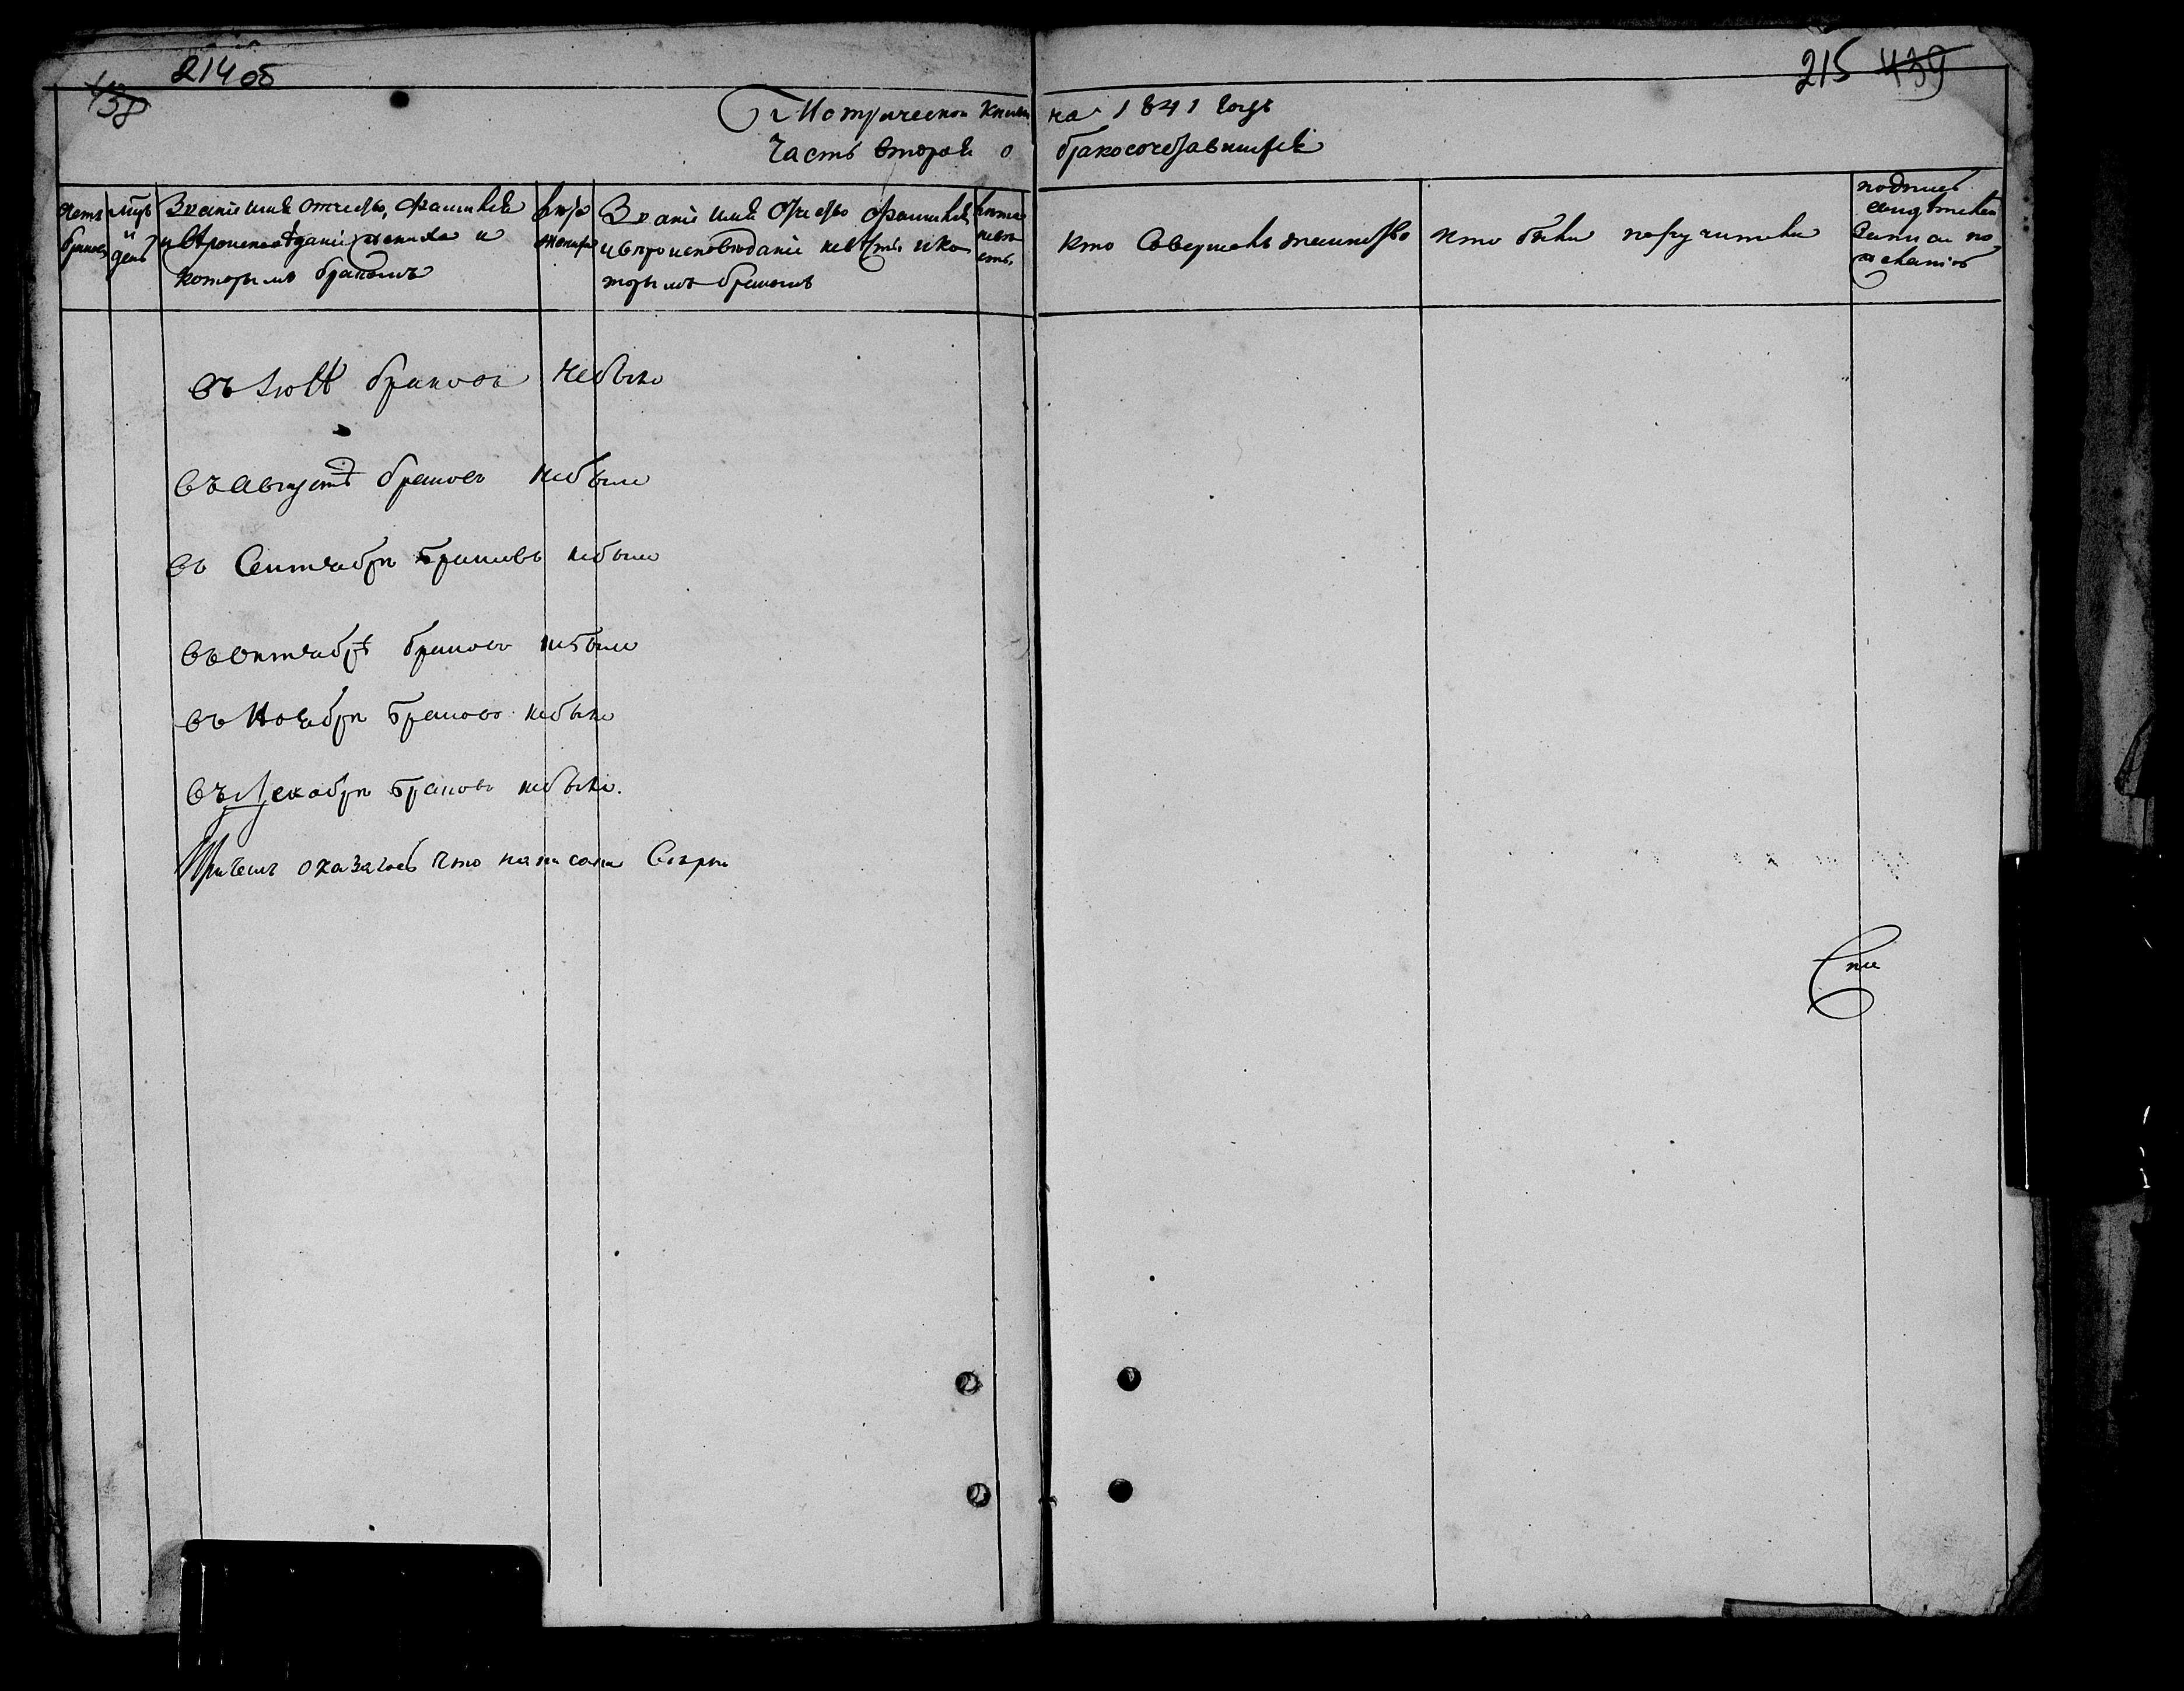 214 об
438
215 439
Метрической книги на 1841 годъ
Часть вторая о бракосочетавшихся
Счетъ браковъ
Мцъ и день
Званіе имя отчество, фамилія
и вѣроисповѣданіе жениха и
которымъ бракомъ
Званіе имя отчество фамилія
и вѣроисповѣданіе невѣсты и ко-
торымъ бракомъ
кто совершалъ таинство
кто были поручители
подпись
свидѣтелей
записи по
желанію
въ Іюлѣ браковъ небыло
въ августѣ браковъ небыло
въ Сентябрѣ браковъ небыло
въ октябрѣ браковъ небыло
въ Ноябрѣ браковъ небыло
въ Декабрѣ браковъ небыло.
оказалось что написано